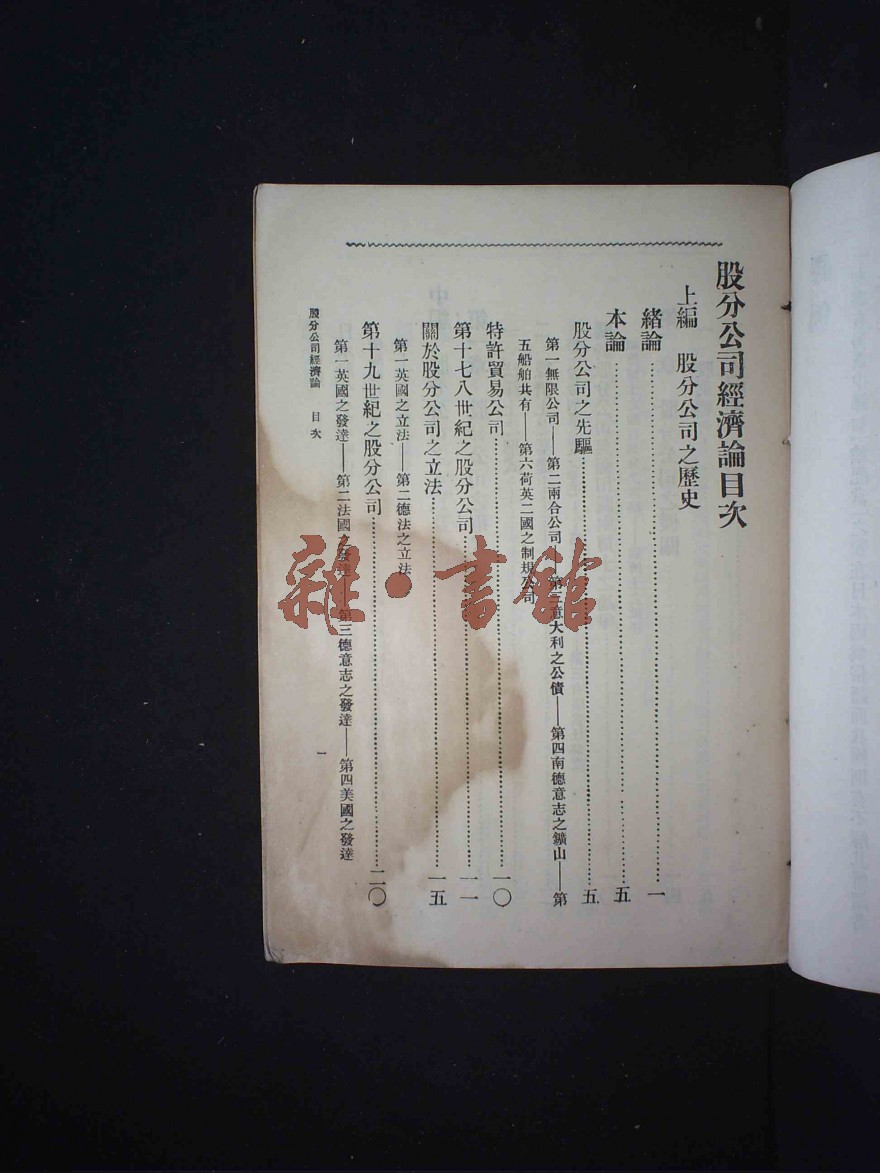 股分公司經濟論目次
上編　股分公司之歷史
緒論……一
本論……五
股分公司之先驅……五
第一無限公司——第二兩合公司——第三意大利之公債——第四南德意志之鑛山——第
五船舶共有——第六荷英二國之制規公司
特許貿易公司……一〇
第十七八世紀之股分公司……一一
關於股分公司之立法……一五
第一英國之立法——第二德法之立法
第十九世紀之股分公司……二〇
第一英國之發達——第二法國之發達——第三德意志之發達——第四美國之發達
股分公司經濟論　目次
一
雜·書館